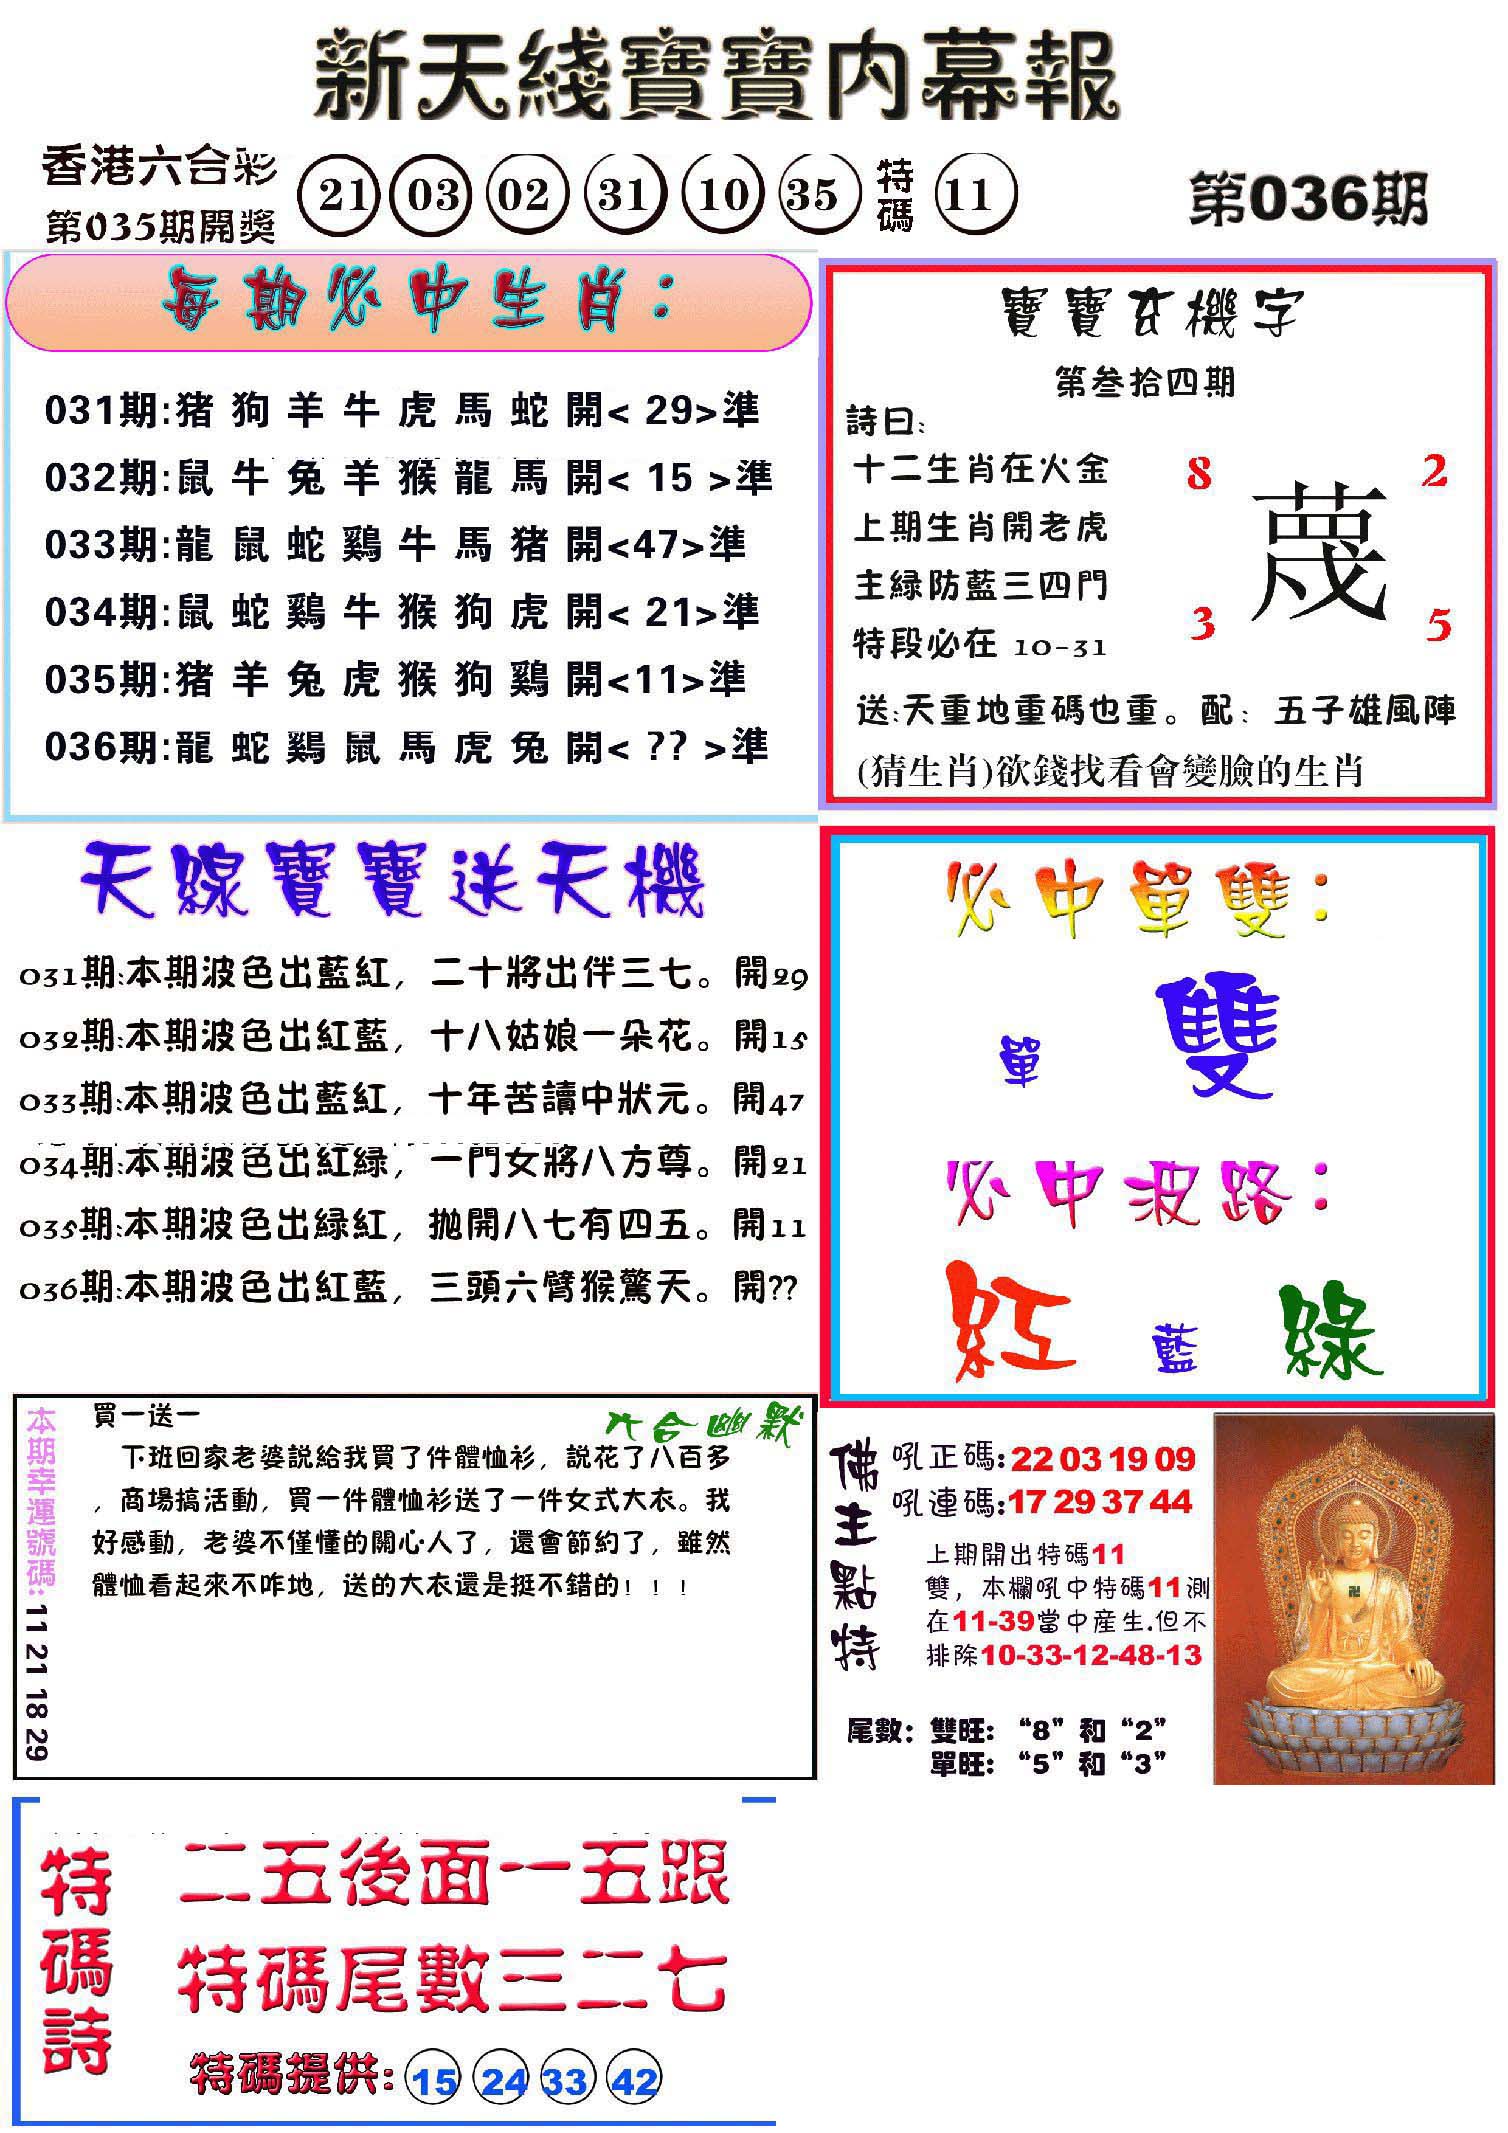 新天綫寶寶内幕報
香港六合彩
第035期開獎
21 03 02 31 10 35 特碼 11
第036期
每期必中生肖：
031期:猪狗羊牛虎馬蛇開< 29>準
032期:鼠牛兔羊猴龍馬開< 15 >準
033期:龍鼠蛇鷄牛馬猪開<47>準
034期:鼠蛇鷄牛猴狗虎開< 21>準
035期:猪羊兔虎猴狗鷄開<11>準
036期:龍蛇鷄鼠馬虎兔開< ?? >準
寶寶玄機字
第叁拾四期
詩曰:
十二生肖在火金
上期生肖開老虎
主緑防藍三四門
特段必在 10-31
8 2
蔑
3 5
送:天重地重碼也重。配：五子雄風陣
(猜生肖)欲錢找看會變臉的生肖
天線寶寶送天機
031期:本期波色出藍紅，二十將出伴三七。開29
032期:本期波色出紅藍，十八姑娘一朵花。開15
033期:本期波色出藍紅，十年苦讀中狀元。開47
034期:本期波色出紅緑，一門女將八方尊。開21
035期:本期波色出緑紅，抛開八七有四五。開11
036期:本期波色出紅藍，三頭六臂猴驚天。開??
必中單雙：
單 雙
必中波路：
紅 藍 綠
本期幸運號碼: 11 21 18 29
六合幽默
買一送一
下班回家老婆説給我買了件體恤衫，説花了八百多
，商場搞活動，買一件體恤衫送了一件女式大衣。我
好感動，老婆不僅懂的關心人了，還會節約了，雖然
體恤看起來不咋地，送的大衣還是挺不錯的！！！
佛主點特
吼正碼:22 03 19 09
吼連碼:17 29 37 44
上期開出特碼11
雙，本欄吼中特碼11測
在11-39當中産生.但不
排除10-33-12-48-13
尾數：雙旺：“8”和“2”
單旺：“5”和“3”
特碼詩
二五後面一五跟
特碼尾數三二七
特碼提供: 15 24 33 42